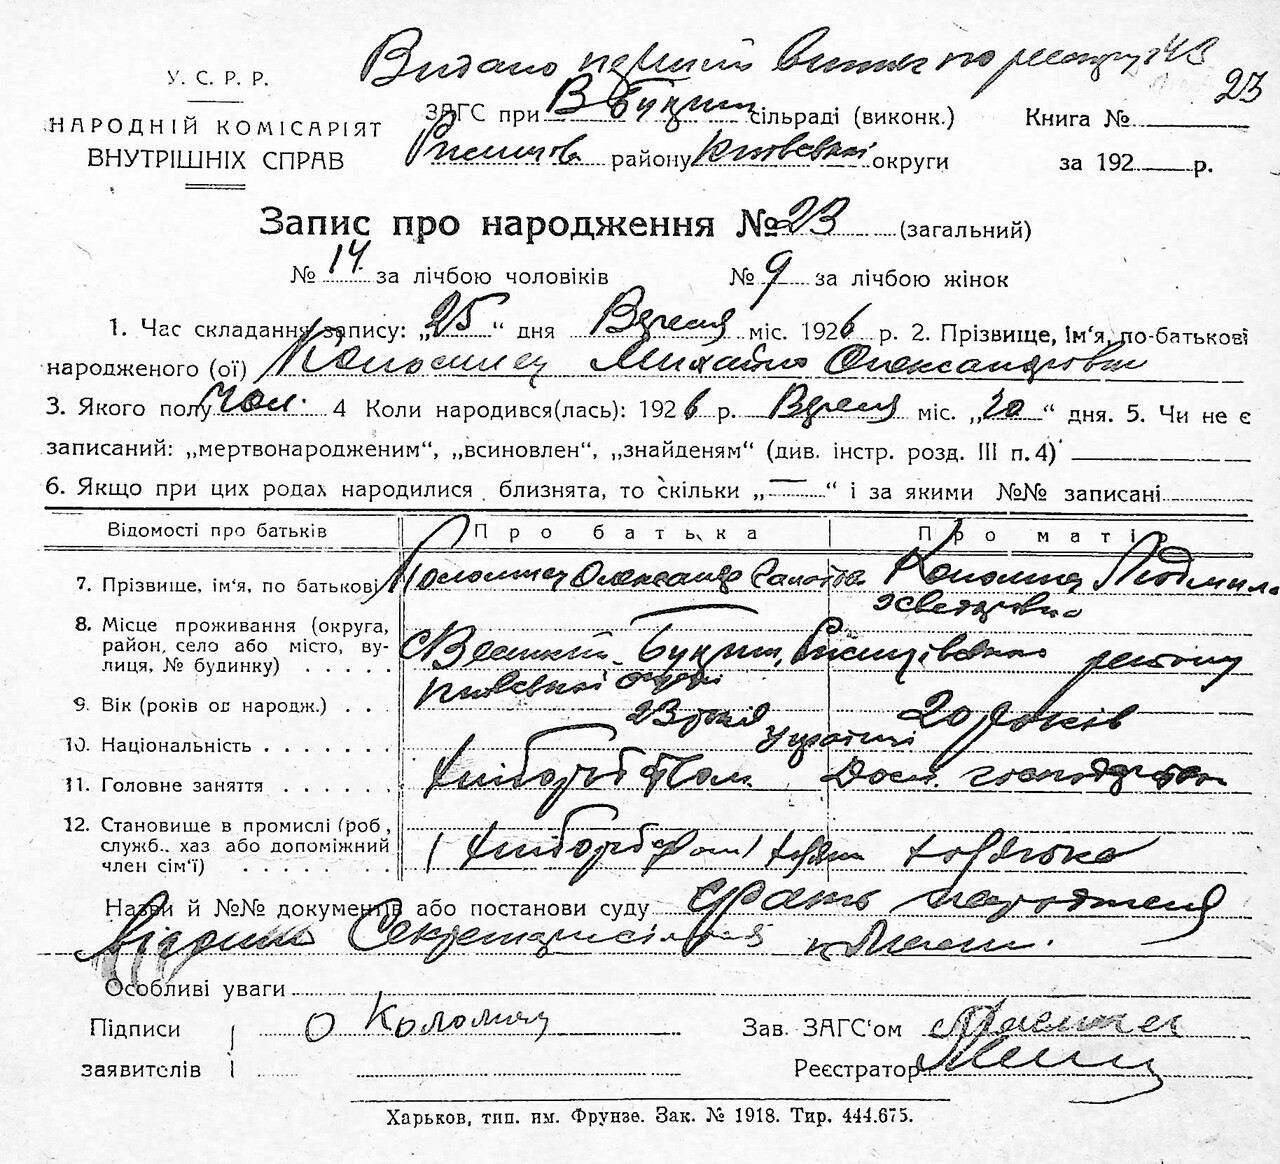 Видано перший витяг по реєстру 143
23
У. С. Р. Р.
НАРОДНІЙ КОМІСАРІЯТ
ВНУТРІШНІХ СПРАВ
ЗАГС при В Букрин сільраді (виконк.)
району Київської округи
Книга №
за 192 р.
Запис про народження № 23 (загальний)
№ 14 за лічбою чоловіків № 9 за лічбою жінок
1. Час складання запису: „25“ дня Вересня міс. 1926 р. 2. Прізвище, ім'я, по-батькові
народженого (ої) Коломиец Михайло Олександрович
3. Якого полу Чол. 4 Коли народився(лась): 1926 р. Вересня міс. „20“ дня. 5. Чи не є
записаний: „мертвонародженим“, „всиновлен“, „знайденям“ (див. інстр. розд. III п. 4)
6. Якщо при цих родах народилися близнята, то скільки „—“ і за якими №№ записані
Відомості про батьків Про батька Про матір
7. Прізвище, ім'я, по батькові Коломиец Олександр Коломиец Людмила
8. Місце проживання (округа,
район, село або місто, ву-
лиця, № будинку) с Великий Букрин, району
Київської округи
9. Вік (років од народж.) 23 років 20 років
10. Національність українці
11. Головне заняття хлібороб Дом. господарство
12. Становище в промислі (роб,
служб.. хаз або допоміжний
член сім'ї) хлібороб
Назви й №№ документів або постанови суду
Особливі уваги
Підписи О Коломиец Зав. ЗАГС'ом
заявителів Реєстратор
Харьков, тип. им. Фрунзе. Зак. № 1918. Тир. 444.675.